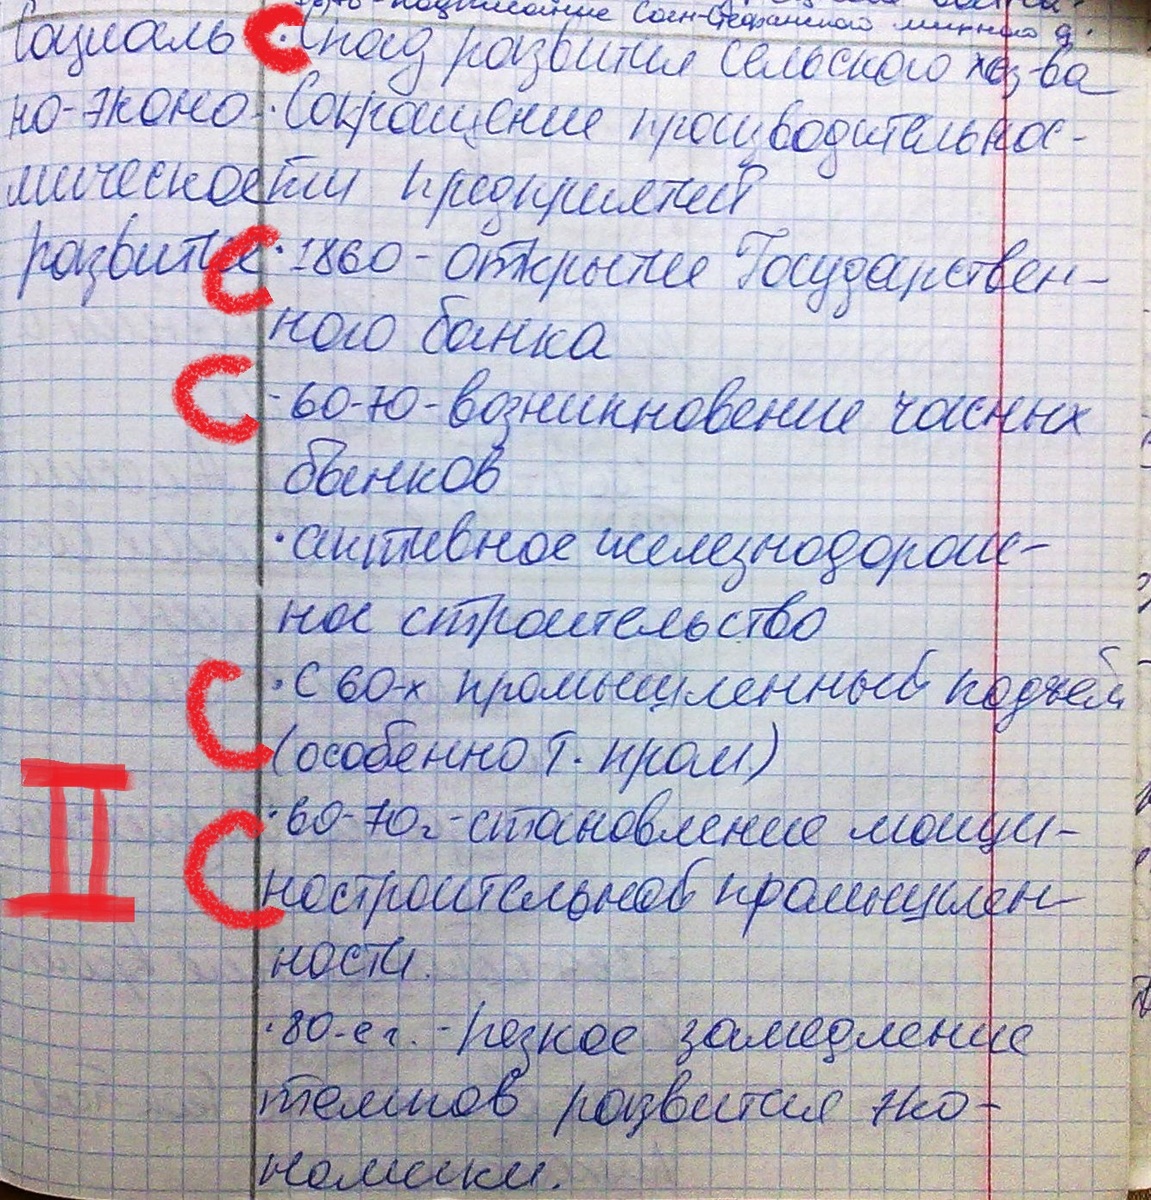 подписание Сан-Стефанского мирного д.
Социаль · Спад развития сельского хоз-ва
но-эконо · Сокращение производительнос-
мическое ти предприятий
развитие · 1860 - открытие Государствен-
ного банка
· 60-70 - возникновение частных
банков
· активное железнодорож-
ное строительство
· С 60-х промышленный подъем
(особенно т. пром)
· 60-70г - становление маши-
ностроительной промышлен-
ности.
· 80-е г. - резкое замедление
темпов развития эко-
номики.
С
С
С
С
С
II